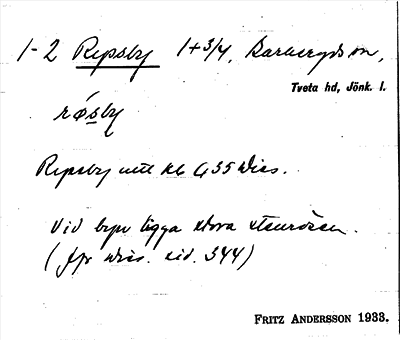 1-2 Repsby 1+3/4, Barkeryds sn,
Tveta hd, Jönk. l.
røsby
Repsby utt kl 4 35 Wies.
Vid byn ligga stora stenrösen.
(jfr Wies. sid. 344)
FRITZ ANDERSSON 1933.